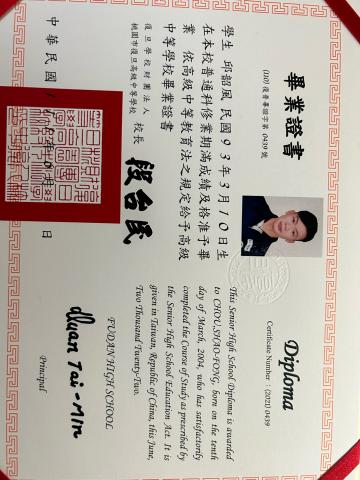 畢業證書
(110)復普畢證字第 0439 號
學生 邱韶風 民國93年3月10日生
在本校普通科修業期滿成績及格准予畢
業 依高級中等教育法之規定給予高級
中等學校畢業證書
復旦學校財團法人
桃園市復旦高級中等學校
校長
段台民
中華民國
日
Diploma
Certificate Number : (2022) 0439
This Senior High School Diploma is awarded
to CHIOU,SHAO-FONG, born on the tenth
day of March, 2004, who has satisfactorily
completed the Course of Study as prescribed by
the Senior High School Education Act. It is
given in Taiwan, Republic of China, this June,
Two Thousand Twenty-Two.
FUDAN HIGH SCHOOL
Duan Tai-Min
Principal